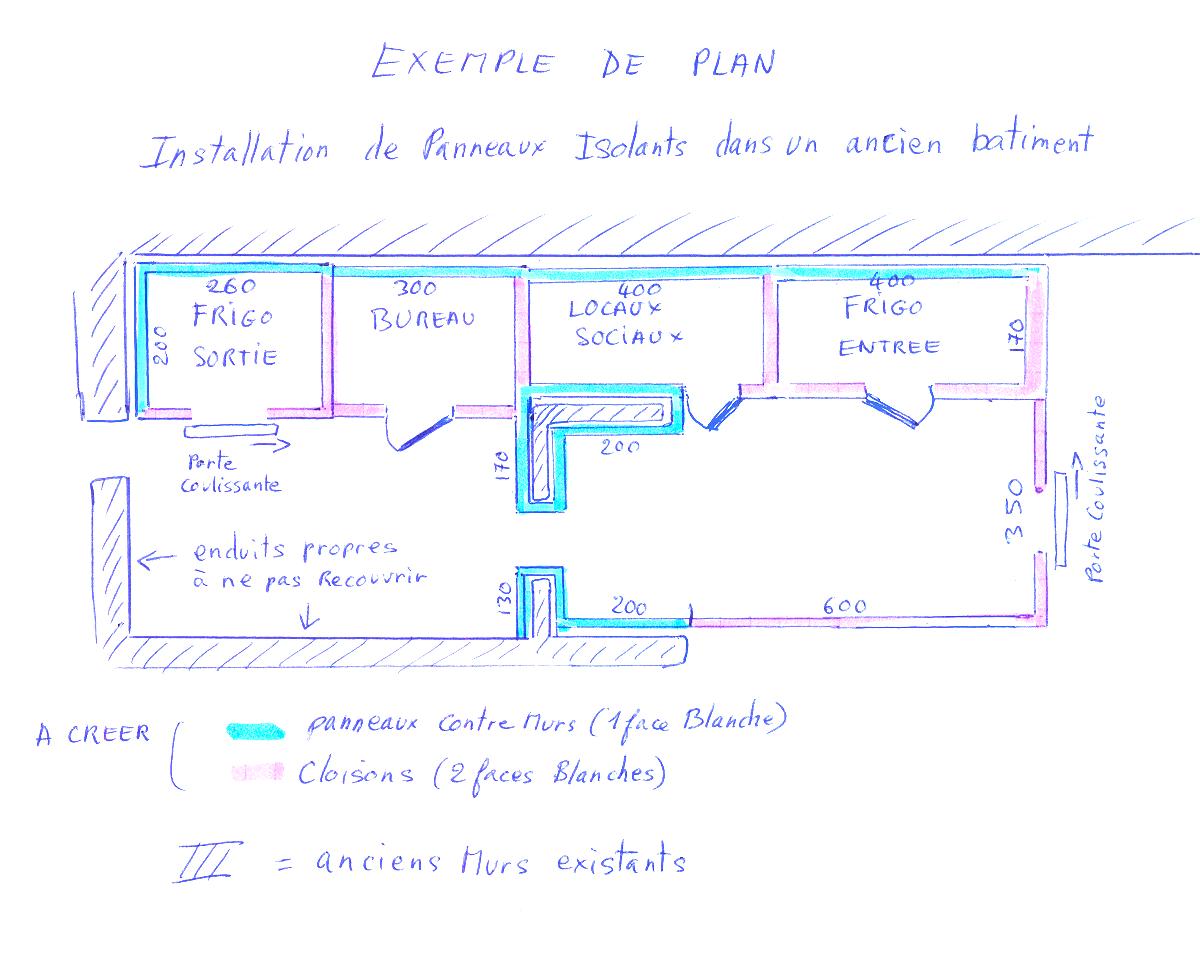 EXEMPLE DE PLAN
Installation de Panneaux Isolants dans un ancien batiment
260
FRIGO
SORTIE
200
300
BUREAU
400
LOCAUX
SOCIAUX
400
FRIGO
ENTREE
170
Porte
Coulissante
170
200
350
Porte Coulissante
enduits propres
à ne pas Recouvrir
130
200
600
A CREER
panneaux contre Murs (1 face Blanche)
Cloisons (2 faces Blanches)
= anciens Murs existants